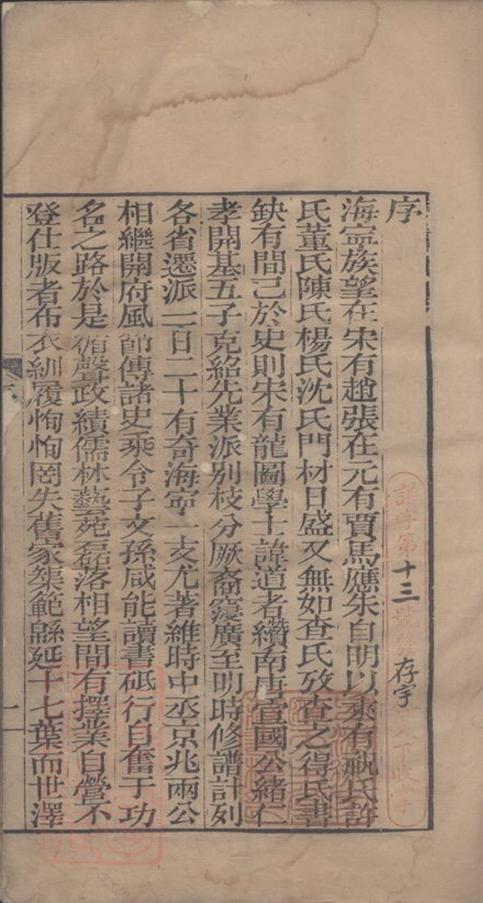 序
海寧族望在宋有趙張在元有賈馬應朱自明以來有祝氏許
氏董氏陳氏楊氏沈氏門材日盛又無如查氏攷查之得氏書
缺有間已於史則宋有龍圖學士諱道者纘南唐宣國公緒仁
孝開基五子克紹先業派別枝分厥裔寖廣至明時修譜計列
各省遷派一百二十有奇海寧一支尤著維時中丞京兆兩公
相繼開府風節傳諸史乘令子文孫咸能讀書砥行自奮于功
名之路於是循聲政績儒林藝苑磊落相望間有擇業自營不
登仕版者布衣紃履恂恂罔失舊家榘範緜延十七葉而世澤
譜字第十三號
存字
收掌